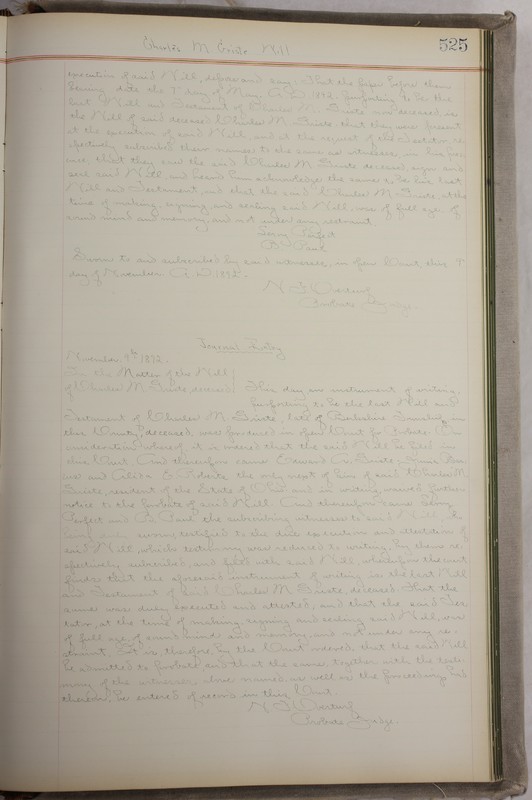 525
Charles M. Griste Will
execution of said Will, depose and say: That the paper before them
bearing date the 7 day of May A.D. 1892, purporting to be the
last Will and Testament of Charles M. Griste now deceased, is
the Will of said deceased Charles M. Griste, that they were present
at the execution of said Will, and at the request of the Testator re-
spectively subscribed their names to the same as witnesses, in his pres-
ence, that they saw the said Charles M. Griste deceased, sign and
seal said Will and heard him acknowledge the same to be his last
Will and Testament, and that the said Charles M. Griste, at the
time of making, signing and sealing said Will, was of full age of
sound mind and memory, and not under any restraint.
Perfect
B. Paul
Sworn to and subscribed by said witnesses, in open Court, this 9"
day of November A.D. 1892.
N. F. Overturf
Probate Judge
Journal Entry
November 9th 1892.
In the Matter of the Will
of Charles M. Griste, deceased This day an instrument of writing,
purporting to be the last Will and
Testament of Charles M. Griste, late of Berkshire Township in
this County, deceased, was produced in open Court for Probate. On
consideration whereof, it is ordered that the said Will be filed in
this Court. And thereupon came Edward
and the only next of kin of said Charles M.
Griste, resident of the State of Ohio and in writing, waived further
notice to the probate of said Will. And thereupon came
Perfect and B. Paul the subscribing witnesses to said Will, who
being duly sworn, testified to the due execution and attestation of
said Will which testimony was reduced to writing, by them re-
spectively subscribed, and filed with said Will, whereupon the court
finds that the aforesaid instrument of writing is the last Will
and Testament of said Charles M. Griste, deceased. That the
same was duly executed and attested, and that the said Tes-
tator, at the time of making, signing and sealing said Will, was
of full age, of sound mind and memory, and not under any re-
straint. It is therefore, by the Court ordered, that the said Will
be admitted to probate, and that the same, together with the testi-
mony of the witnesses above named, as well as the proceedings had
thereon, be entered of record in this Court.
N. F. Overturf
Probate Judge.